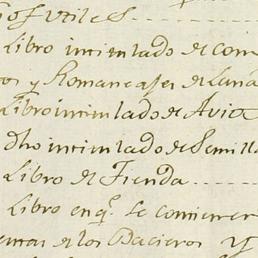 os Vtiles
Libro intitulado de Com
os y Romanages de Lana
Libro intitulado de Avia
dho intitulado de Semilla
Libro de Tienda
Libro en q.e se contienen
entas de los Bacieros y